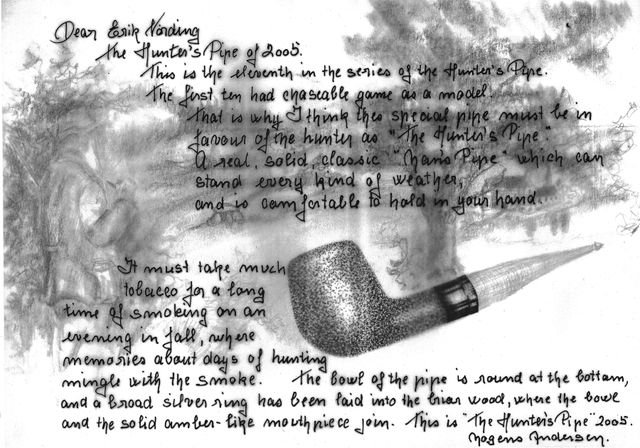 Dear Erik Nørding
The Hunter's Pipe of 2005.
This is the eleventh in the series of the Hunter's Pipe.
The first ten had chaseable game as a model.
That is why I think this special pipe must be in
favour of the hunter as "The Hunter's Pipe."
A real, solid, classic "Mans Pipe" which can
stand every kind of weather,
and is comfortable to hold in your hand.
It must take much
tobacco for a long
time of smoking on an
evening in fall, where
memories about days of hunting
mingle with the smoke. The bowl of the pipe is round at the bottom,
and a broad silver ring has been laid into the briar wood, where the bowl
and the solid amber-like mouthpiece join. This is "The Hunter's Pipe" 2005.
Mogens Andersen.